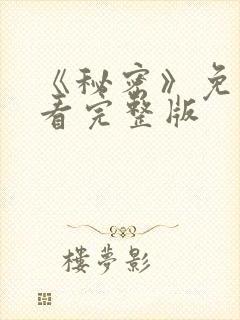 《秘密》免
看完整版
楼梦影